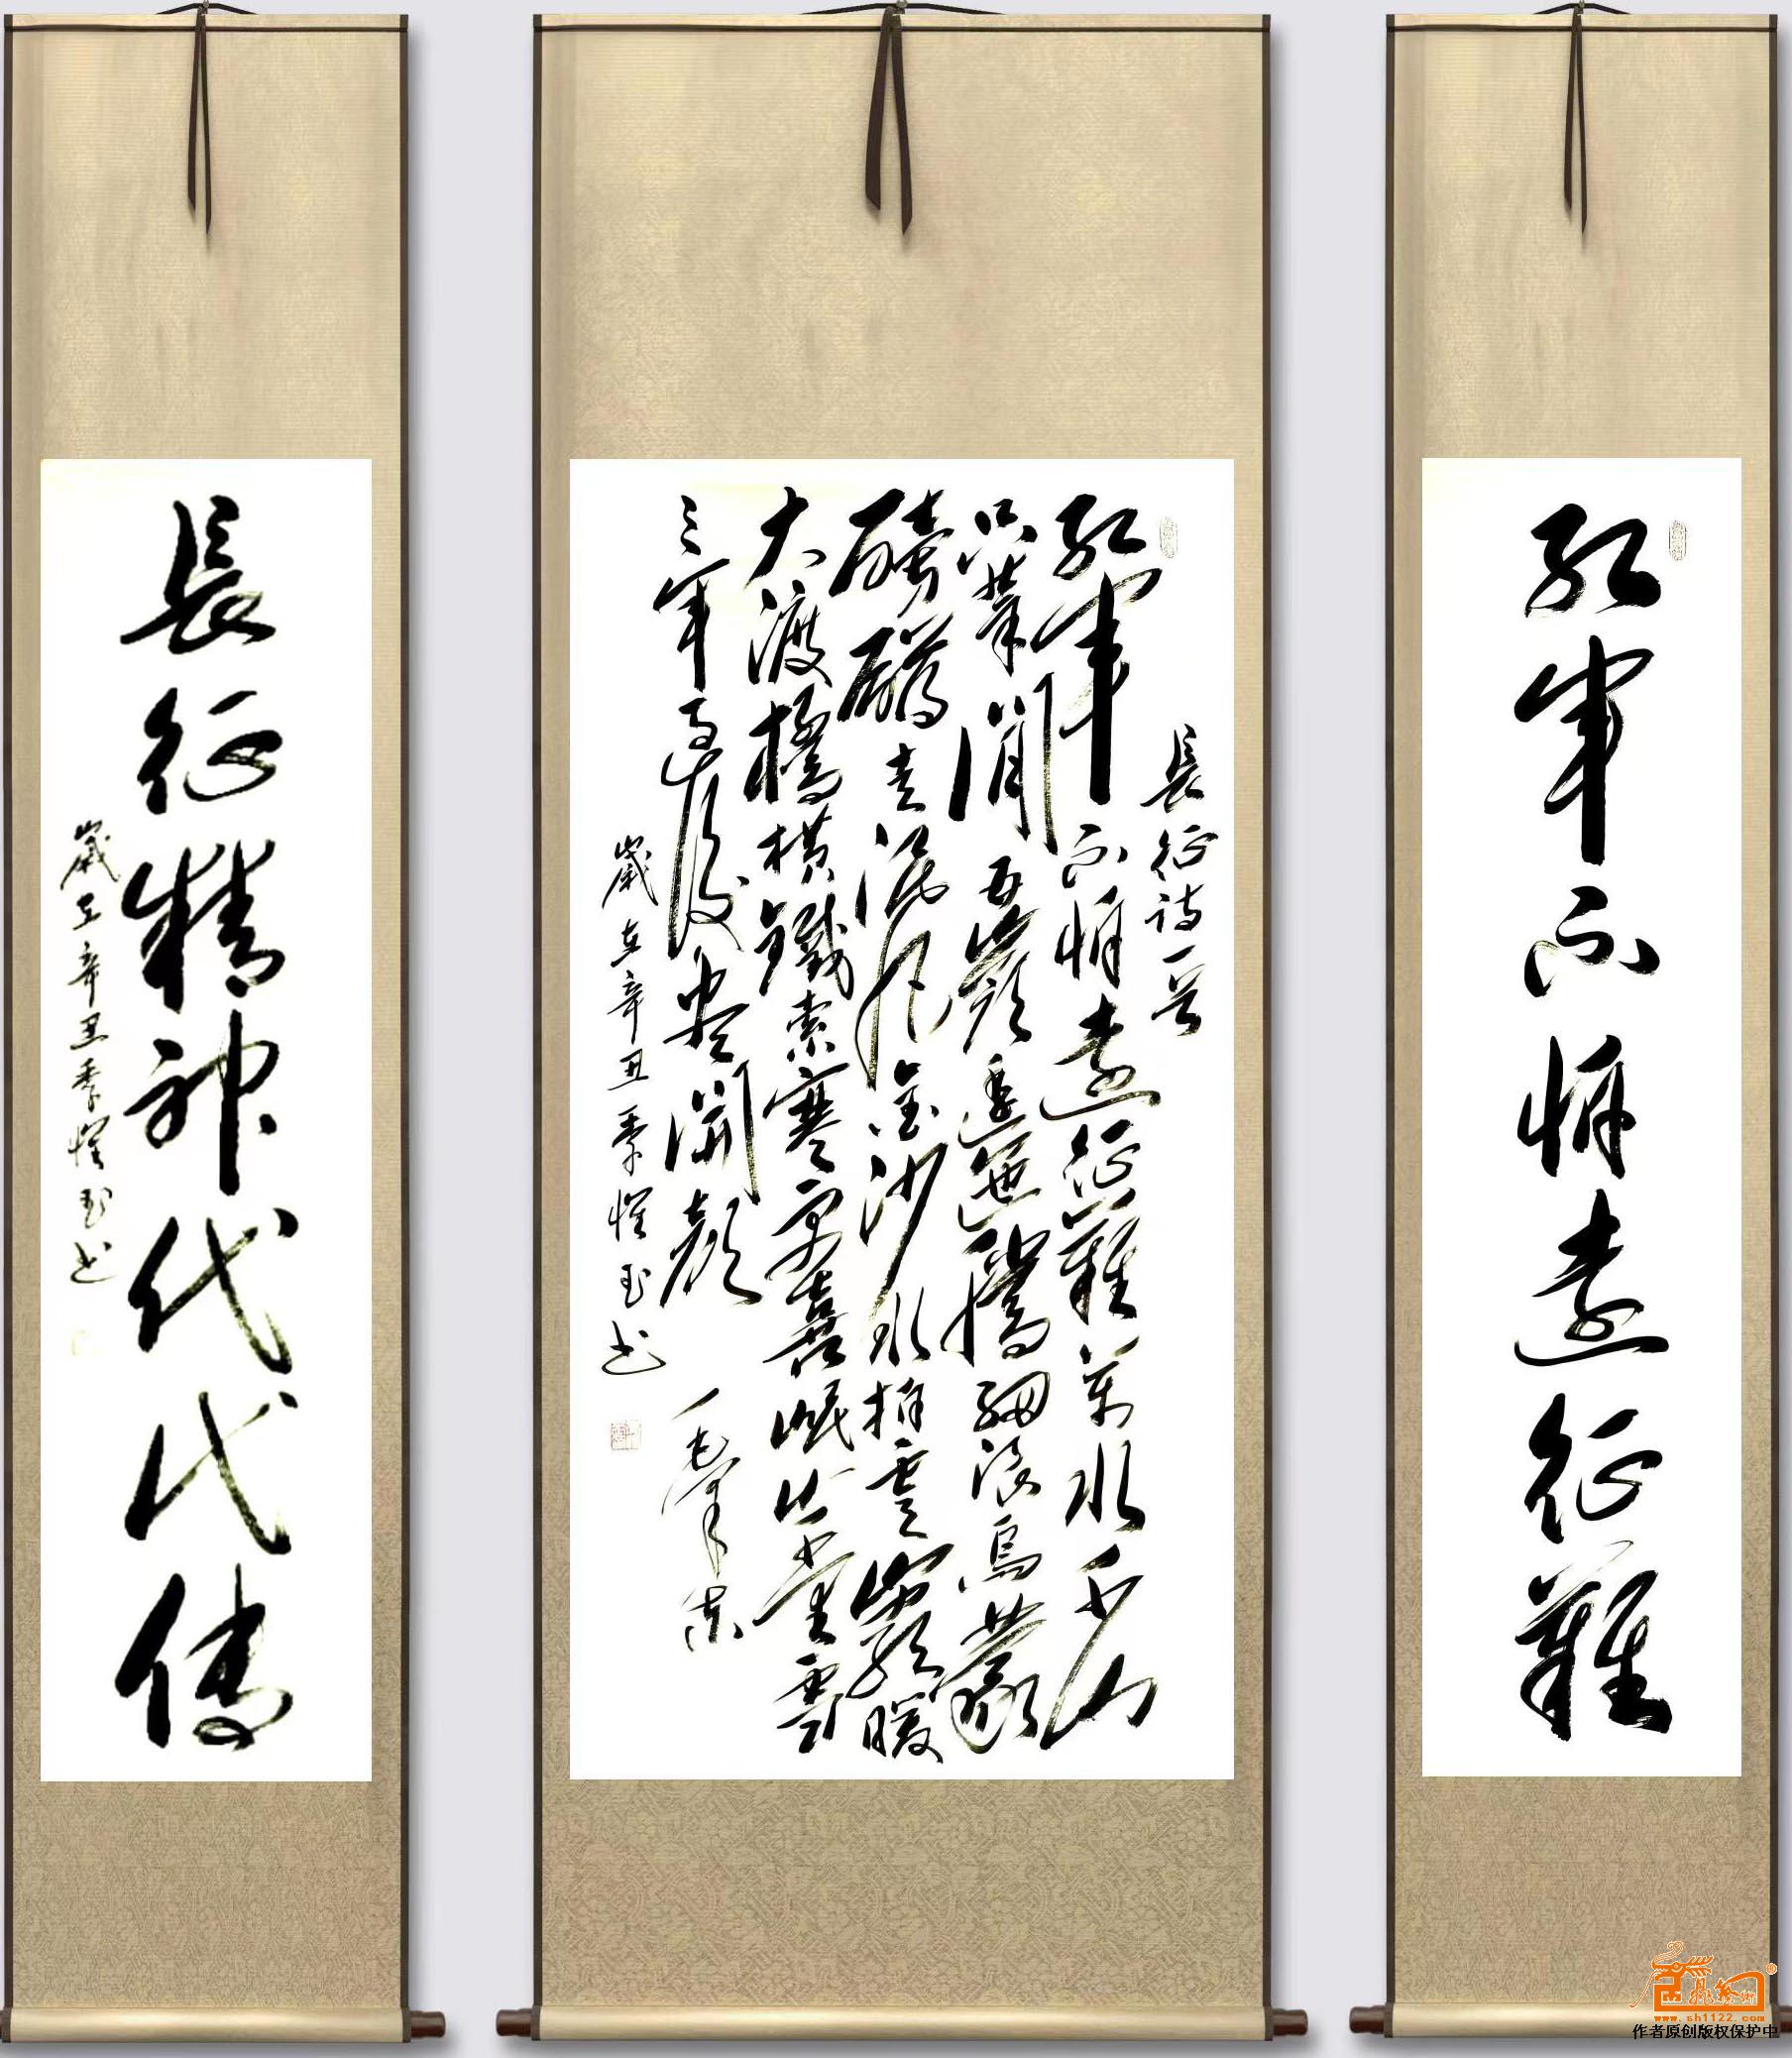 紅軍不怕遠征難
長征詩一首
紅軍不怕遠征難萬水千山
只等閒五嶺逶迤騰細浪烏蒙
磅礴走泥丸金沙水拍雲崖暖
大渡橋橫鐵索寒更喜岷山千里雪
三軍過後盡開顏 毛澤東
歲在辛丑 玉书
長征精神代代傳
歲在辛丑 玉书
www.sh1122.com
作者原创版权保护中